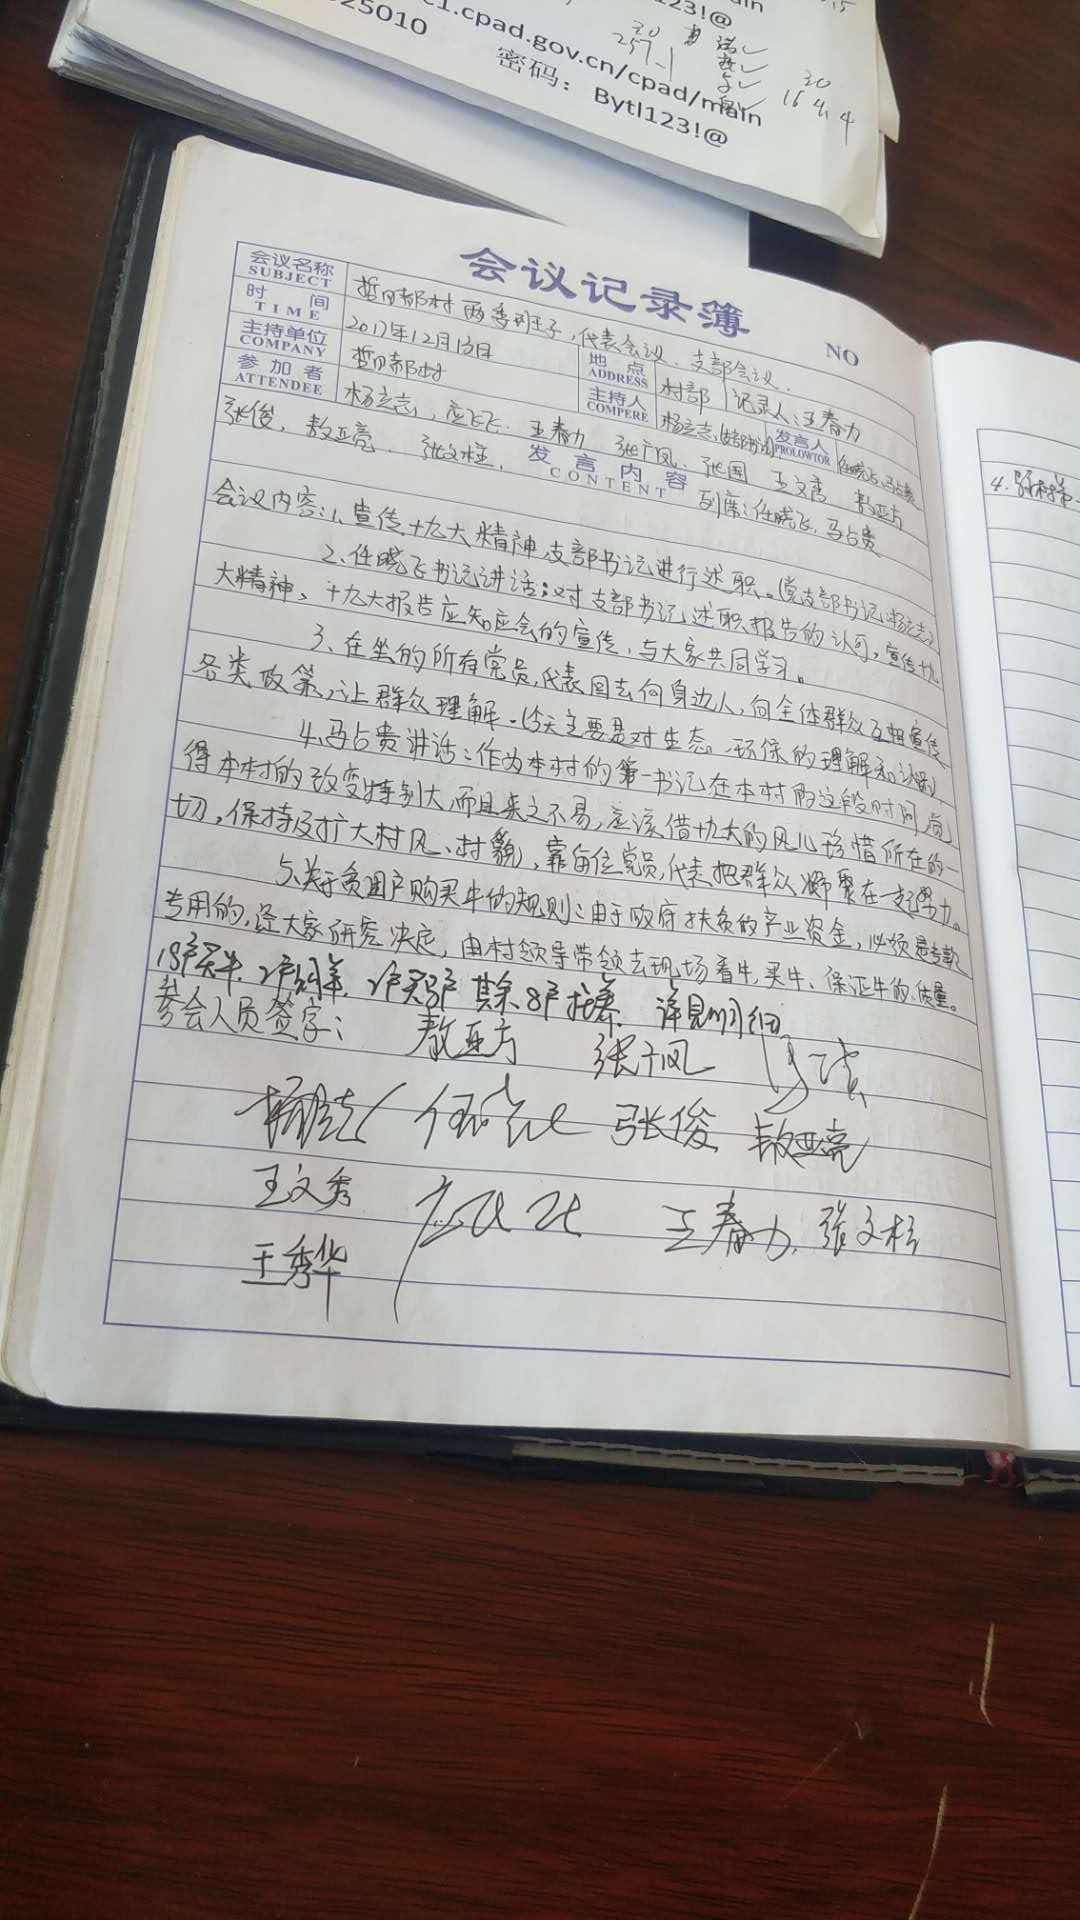 123!@
025010
c1.cpad.gov.cn/cpad/main
密码： Bytl123!@
30
257-1
30
16 4. 4
会议记录簿
NO
会议名称
SUBJECT
哲日郝村两委班子,代表会议、支部会议.
时 间
TIME
2017年12月13日
地 点
ADDRESS
村部
记录人:王春力
主持单位
COMPANY
哲日郝村
主持人
COMPERE
杨立志(支部书记)
发言人
PROLOWTOR
任晓飞、马占贵
参加者
ATTENDEE
杨立志, 应飞飞. 王春力 张广凤. 张国 王文秀 敖亚方
张俊, 敖亚亮. 张文柱.
发言内容
CONTENT
列席:任晓飞, 马占贵
会议内容:1.宣传十九大精神支部书记进行述职。(党支部书记:杨立志)
2.任晓飞书记讲话:对支部书记述职报告的认可,宣传十九
大精神、十九大报告应知应会的宣传,与大家共同学习。
3、在坐的所有党员,代表回去向身边人,向全体群众互相宣传
各类政策,让群众理解.今天主要是对生态、环保的理解和认识
4.马占贵讲话:作为本村的第一书记在本村的这段时间,觉
得本村的改变特别大,而且来之不易,应该借十九大的风儿珍惜所在的一
切,保持及扩大村风、村貌,靠每位党员,代表把群众凝聚在一起努力。
5、关于贫困户购买牛的规则:由于政府扶贫的产业资金,必须是专款
专用的,经大家研究决定,由村领导带领去现场看牛,买牛、保证牛的质量。
其余8户 详见明细
参会人员签字:
敖亚方 张广凤
张俊 敖亚亮
王文秀 王春力. 张文柱
王秀华
4.